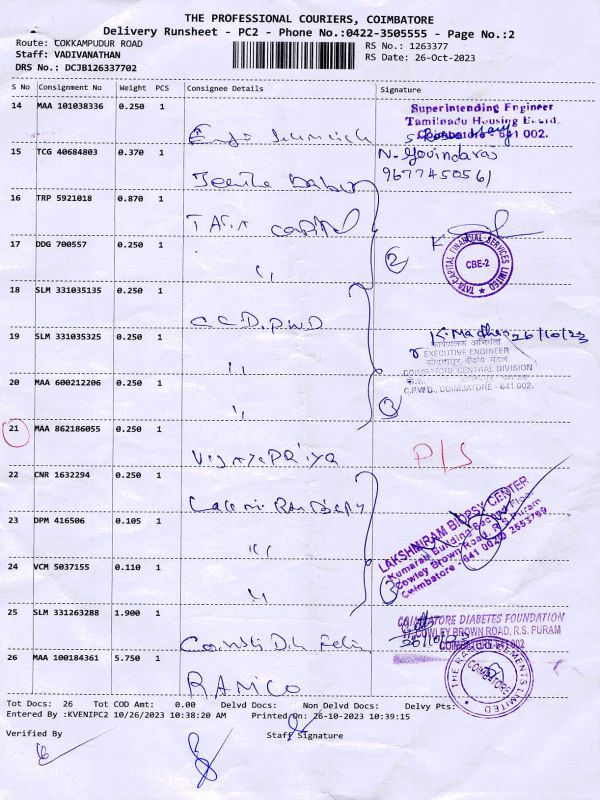 THE PROFESSIONAL COURIERS, COIMBATORE
Delivery Runsheet - PC2 - Phone No.:0422-3505555 - Page No.:2
Route: COKKAMPUDUR ROAD
Staff: VADIVANATHAN
DRS No.: DCJB126337702
RS No.: 1263377
RS Date: 26-Oct-2023
S No Consignment No Weight PCS Consignee Details Signature
14 MAA 101038336 0.250 1
Superintending Engineer
Tamilnadu Housing Board
641 002.
15 TCG 40684803 0.370 1
N. Govindaraj
9677450561
16 TRP 5921018 0.870 1
TATA Capital
17 DDG 700557 0.250 1
"
2
TATA CAPITAL FINANCIAL SERVICES LIMITED
CBE-2
18 SLM 331035135 0.250 1
CCD. PWD
19 SLM 331035325 0.250 1
"
K. Madhu 26/10/23
कार्यपालक अभियंता
EXECUTIVE ENGINEER
COIMBATORE CENTRAL DIVISION
C.P.W.D., COIMBATORE - 641 002.
20 MAA 600212206 0.250 1
"
3
21 MAA 862186055 0.250 1
VijayaPriya
P/S
22 CNR 1632294 0.250 1
23 DPM 416506 0.105 1
"
24 VCM 5037155 0.110 1
"
3
LAKSHMIRAM BIOPSY CENTER
Kumaran Building Second Floor
Cowley Brown Road, R.S. Puram
Coimbatore - 641 002
25 SLM 331263288 1.900 1
COIMBATORE DIABETES FOUNDATION
COWLEY BROWN ROAD, R.S. PURAM
26 MAA 100184361 5.750 1
RAMCO
THE RAMCO CEMENTS LIMITED
COIMBATORE
Tot Docs: 26 Tot COD Amt: 0.00 Delvd Docs: Non Delvd Docs: Delvy Pts:
Entered By :KVENIPC2 10/26/2023 10:38:20 AM Printed On: 26-10-2023 10:39:15
Verified By Staff Signature